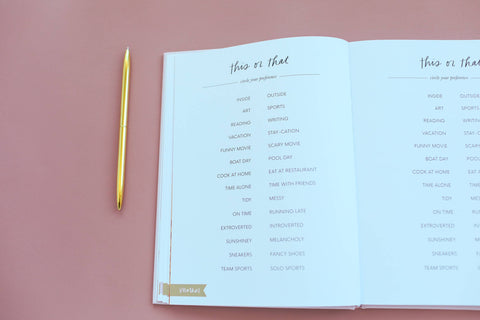 this or that
circle your preference
INSIDE OUTSIDE
ART SPORTS
READING WRITING
VACATION STAY-CATION
FUNNY MOVIE SCARY MOVIE
BOAT DAY POOL DAY
COOK AT HOME EAT AT RESTAURANT
TIME ALONE TIME WITH FRIENDS
TIDY MESSY
ON TIME RUNNING LATE
EXTROVERTED INTROVERTED
SUNSHINEY MELANCHOLY
SNEAKERS FANCY SHOES
TEAM SPORTS SOLO SPORTS
this or that
circle your preference
INSIDE OUTSIDE
ART SPORTS
READING WRITING
VACATION STAY-
FUNNY MOVIE SCARY
BOAT DAY POOL D
COOK AT HOME EAT AT
TIME ALONE TIME
TIDY MESSY
ON TIME RUNN
EXTROVERTED INTRO
SUNSHINEY MELA
SNEAKERS FANC
TEAM SPORTS SOLO